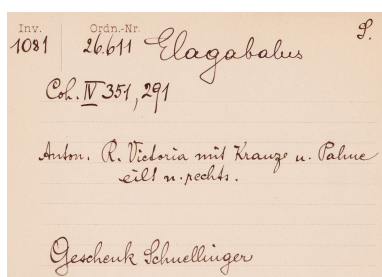 Inv. Ordn.-Nr. S.
1081 26.611 Elagabalus
Coh. IV 351, 291
Anton. R. Victoria mit Kranze u. Palme
eilt n. rechts.
Geschenk Schnellinger